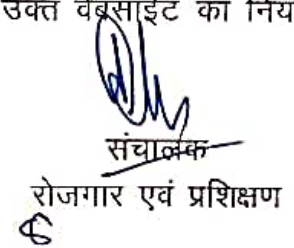 उक्त वेबसाईट का निय
संचालक
रोजगार एवं प्रशिक्षण